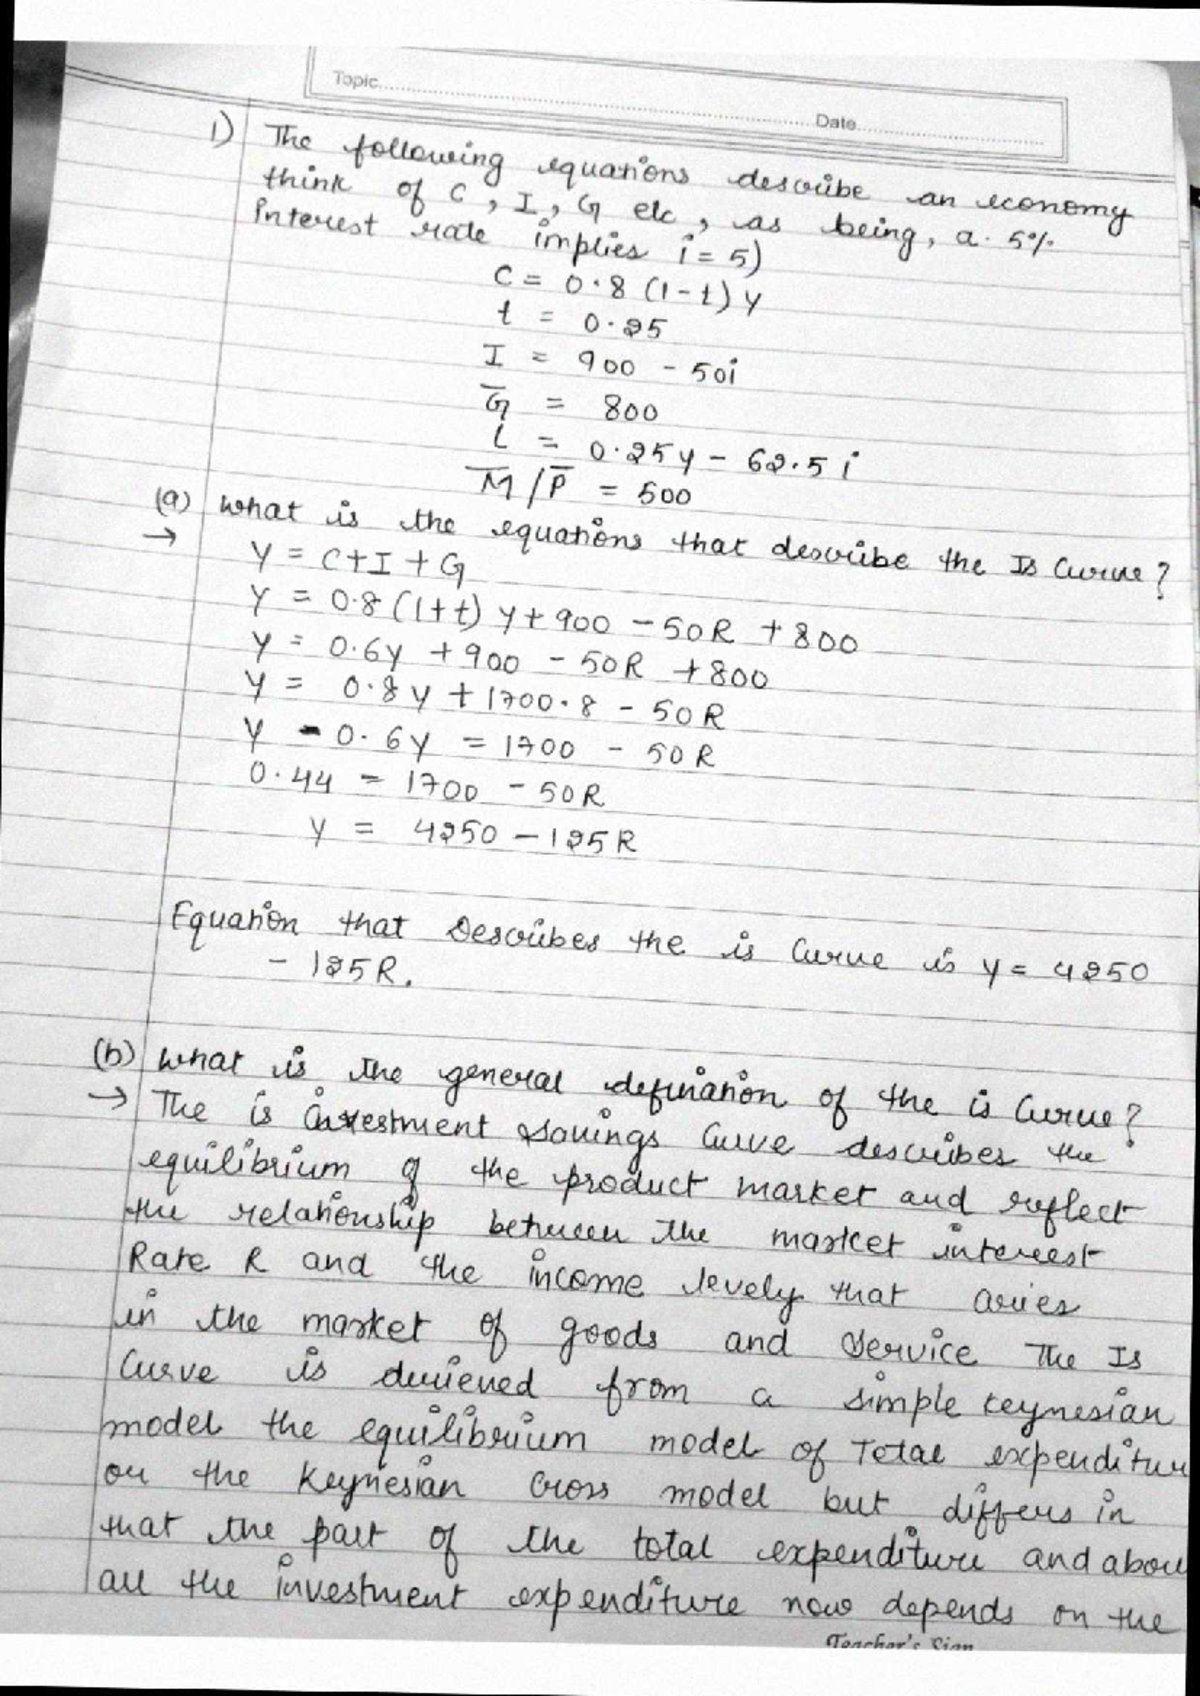 Topic
Date
1) The following equations describe an economy
think of C, I, G etc, as being, a. 5%
interest rate implies i = 5)
C = 0.8 (1-t) y
t = 0.25
I = 900 - 50i
G̅ = 800
L = 0.25y - 62.5 i
M̅/P̅ = 500
(a) what is the equations that describe the Is Curve?
→ Y = C+I+G
Y = 0.8(1+t) y+900 - 50R +800
Y = 0.6y +900 - 50R +800
Y = 0.8y + 1700.8 - 50R
Y - 0.6y = 1700 - 50R
0.44 = 1700 - 50R
y = 4250 - 125R
Equation that Describes the is Curve is y = 4250
- 125R.
(b) what is the general defination of the is Curve?
→ The is investment savings Curve describes the
equilibrium of the product market and reflect
the relationship between the market interest
Rate R and the income levely that aries
in the market of goods and service The Is
Curve is derieved from a simple keynesian
model the equilibrium model of Total expenditure
or the Keynesian Cross model but differs in
that the part of the total expenditure and above
all the investment expenditure now depends on the
Teacher's Sign